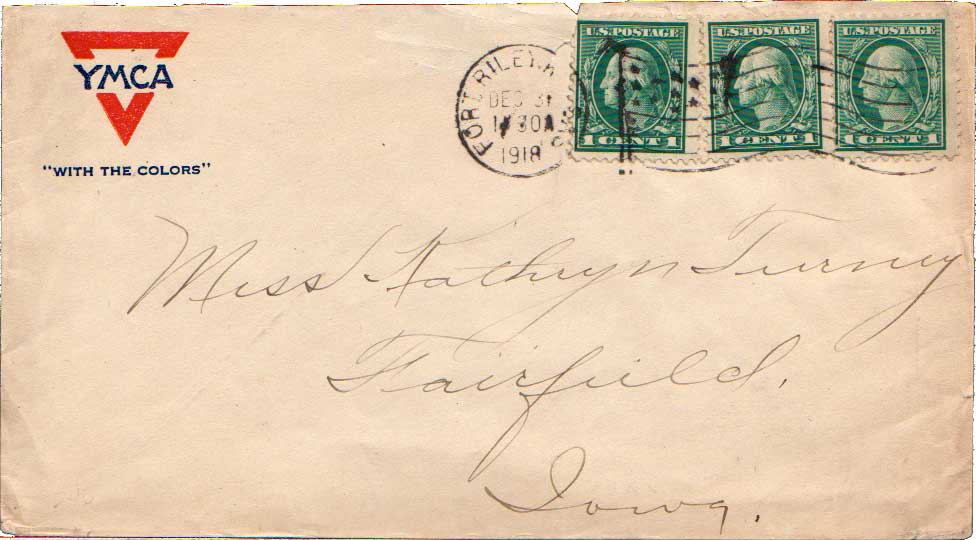 YMCA
"WITH THE COLORS"
FORT RILEY, K
DEC 31
1 30A
1918
U.S. POSTAGE
1 CENT 1
U.S. POSTAGE
1 CENT 1
U.S. POSTAGE
1 CENT 1
Miss Kathryn Turney
Fairfield,
Iowa.